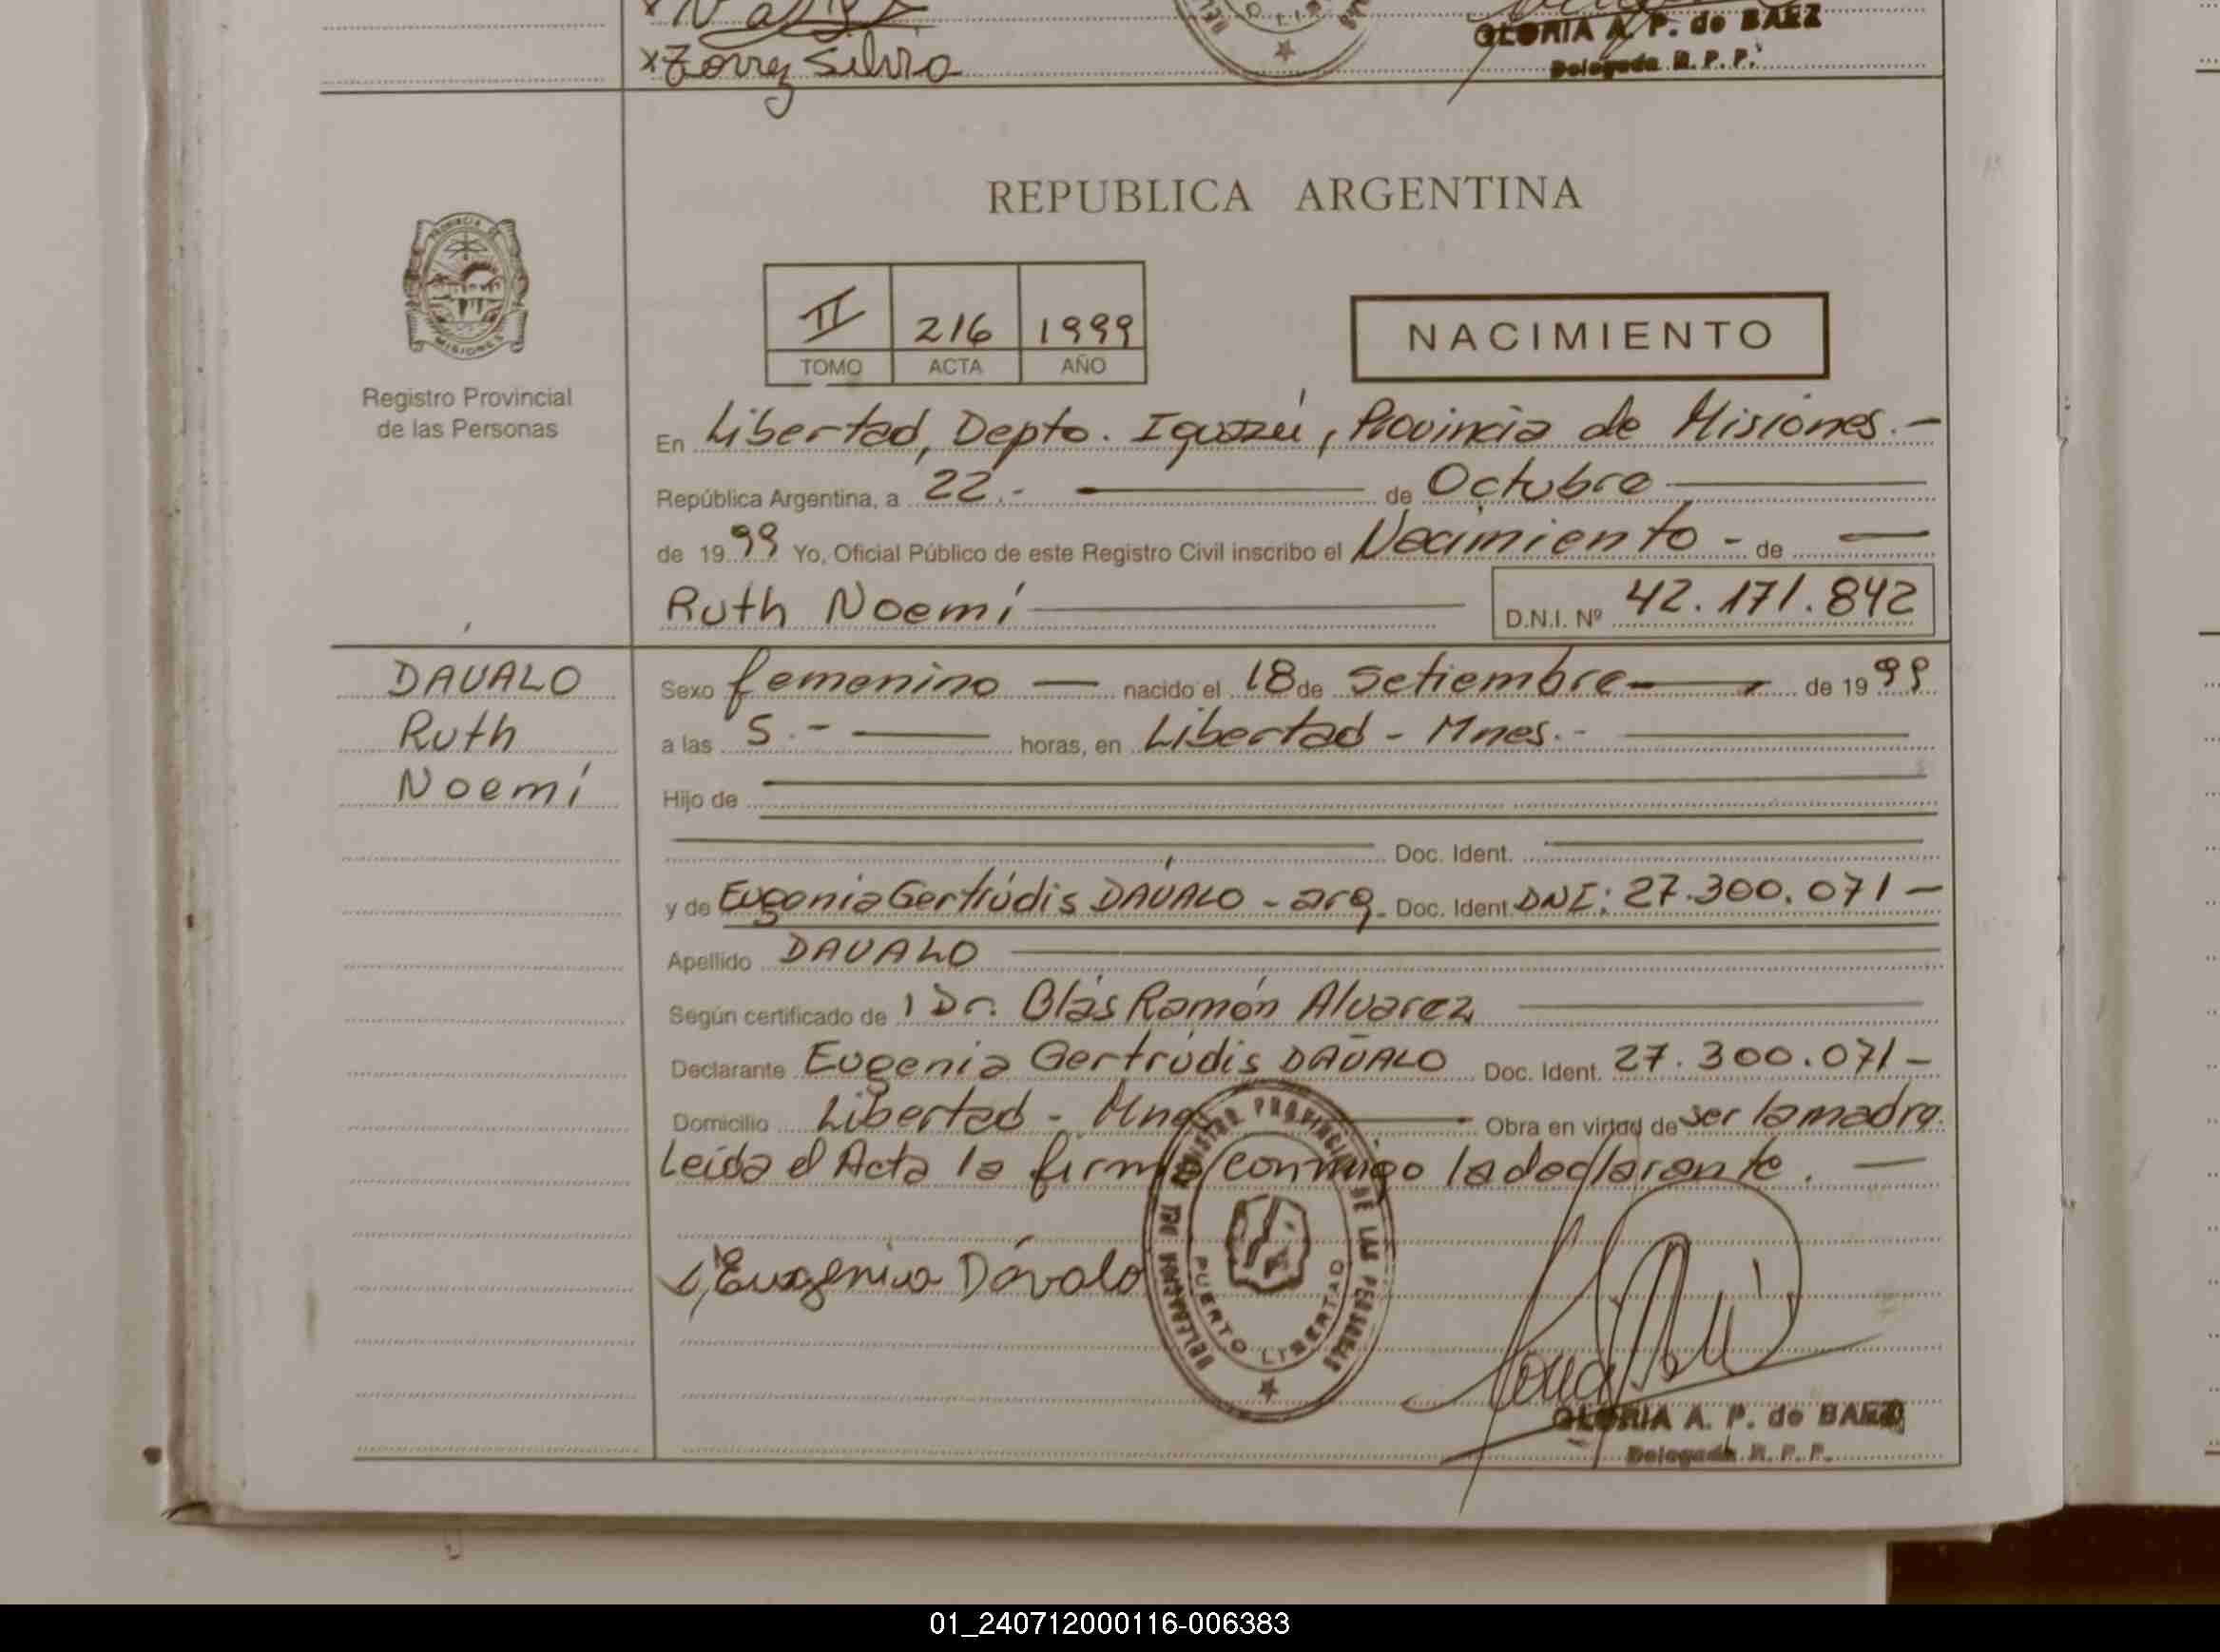 x Zorrez Silvio
GLORIA A. P. de BAEZ
Delegada R. P. P.
REPUBLICA ARGENTINA
PROVINCIA DE
MISIONES
Registro Provincial
de las Personas
II 216 1999
TOMO ACTA AÑO
NACIMIENTO
En Libertad, Depto. Iguazú, Provincia de Misiones.-
República Argentina, a 22.- de Octubre
de 1999 Yo, Oficial Público de este Registro Civil inscribo el Nacimiento - de
Ruth Noemí D.N.I. Nº 42.171.842
DAVALO
Ruth
Noemí
Sexo femenino nacido el 18 de Setiembre de 1999
a las 5.- horas, en Libertad - Mnes.-
Hijo de
Doc. Ident.
y de Eugenia Gertrúdis DÁVALO - arg. Doc. Ident. DNI: 27.300.071 -
Apellido DAVALO
Según certificado de 1 Dr. Blás Ramón Alvarez
Declarante Eugenia Gertrúdis DAVALO Doc. Ident. 27.300.071 -
Domicilio Libertad - Mnes Obra en virtud de ser la madre.
Leída el Acta la firma conmigo la declarante.
Eugenia Dávalo
REGISTRO PROVINCIAL DE LAS PERSONAS
DELEGACION
PUERTO LIBERTAD
GLORIA A. P. de BAEZ
Delegada R. P. P.
01_240712000116-006383